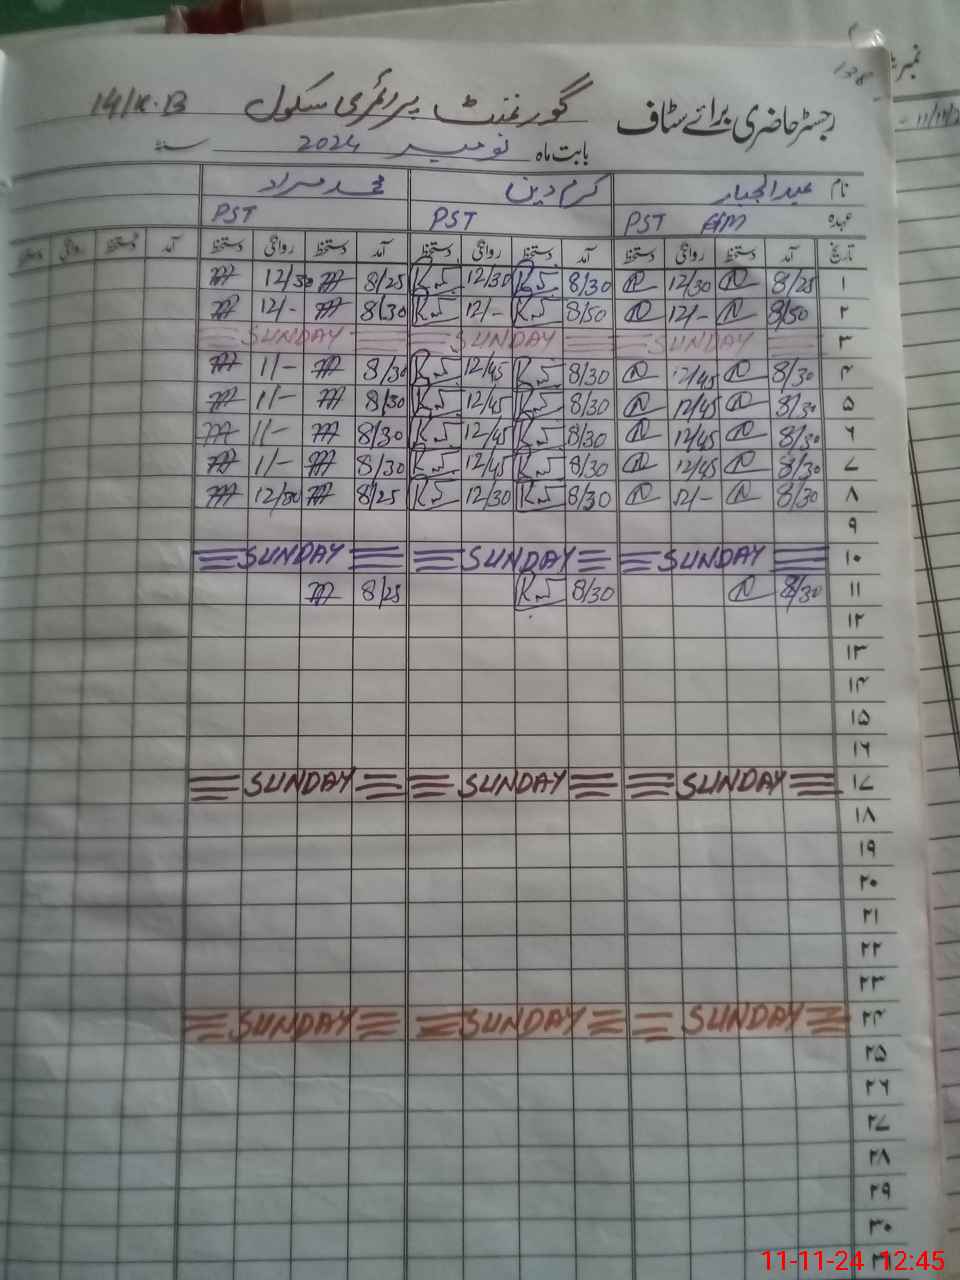 138
رجسٹر حاضری برائے سٹاف گورنمنٹ پرائمری سکول 14/K.B
بابت ماہ نومبر 2024 سنہ
نام عبدالجبار کرم دین محمد مراد
عہدہ PST HM PST PST
تاریخ آمد دستخط روانگی دستخط آمد دستخط روانگی دستخط آمد دستخط روانگی دستخط آمد دستخط روانگی دستخط
۱ 8/25 12/30 8/30 12/30 8/25 12/30
۲ 8/50 12/- 8/50 12/- 8/30 12/-
۳ SUNDAY SUNDAY SUNDAY
۴ 8/30 12/45 8/30 12/45 8/30 11/-
۵ 8/30 12/45 8/30 12/45 8/30 11/-
۶ 8/30 12/45 8/30 12/45 8/30 11/-
۷ 8/30 12/45 8/30 12/45 8/30 11/-
۸ 8/30 12/- 8/30 12/30 8/25 12/30
۹
۱۰ SUNDAY SUNDAY SUNDAY
۱۱ 8/30 8/30 8/25
۱۲
۱۳
۱۴
۱۵
۱۶
۱۷ SUNDAY SUNDAY SUNDAY
۱۸
۱۹
۲۰
۲۱
۲۲
۲۳
۲۴ SUNDAY SUNDAY SUNDAY
۲۵
۲۶
۲۷
۲۸
۲۹
۳۰
11-11-24 12:45